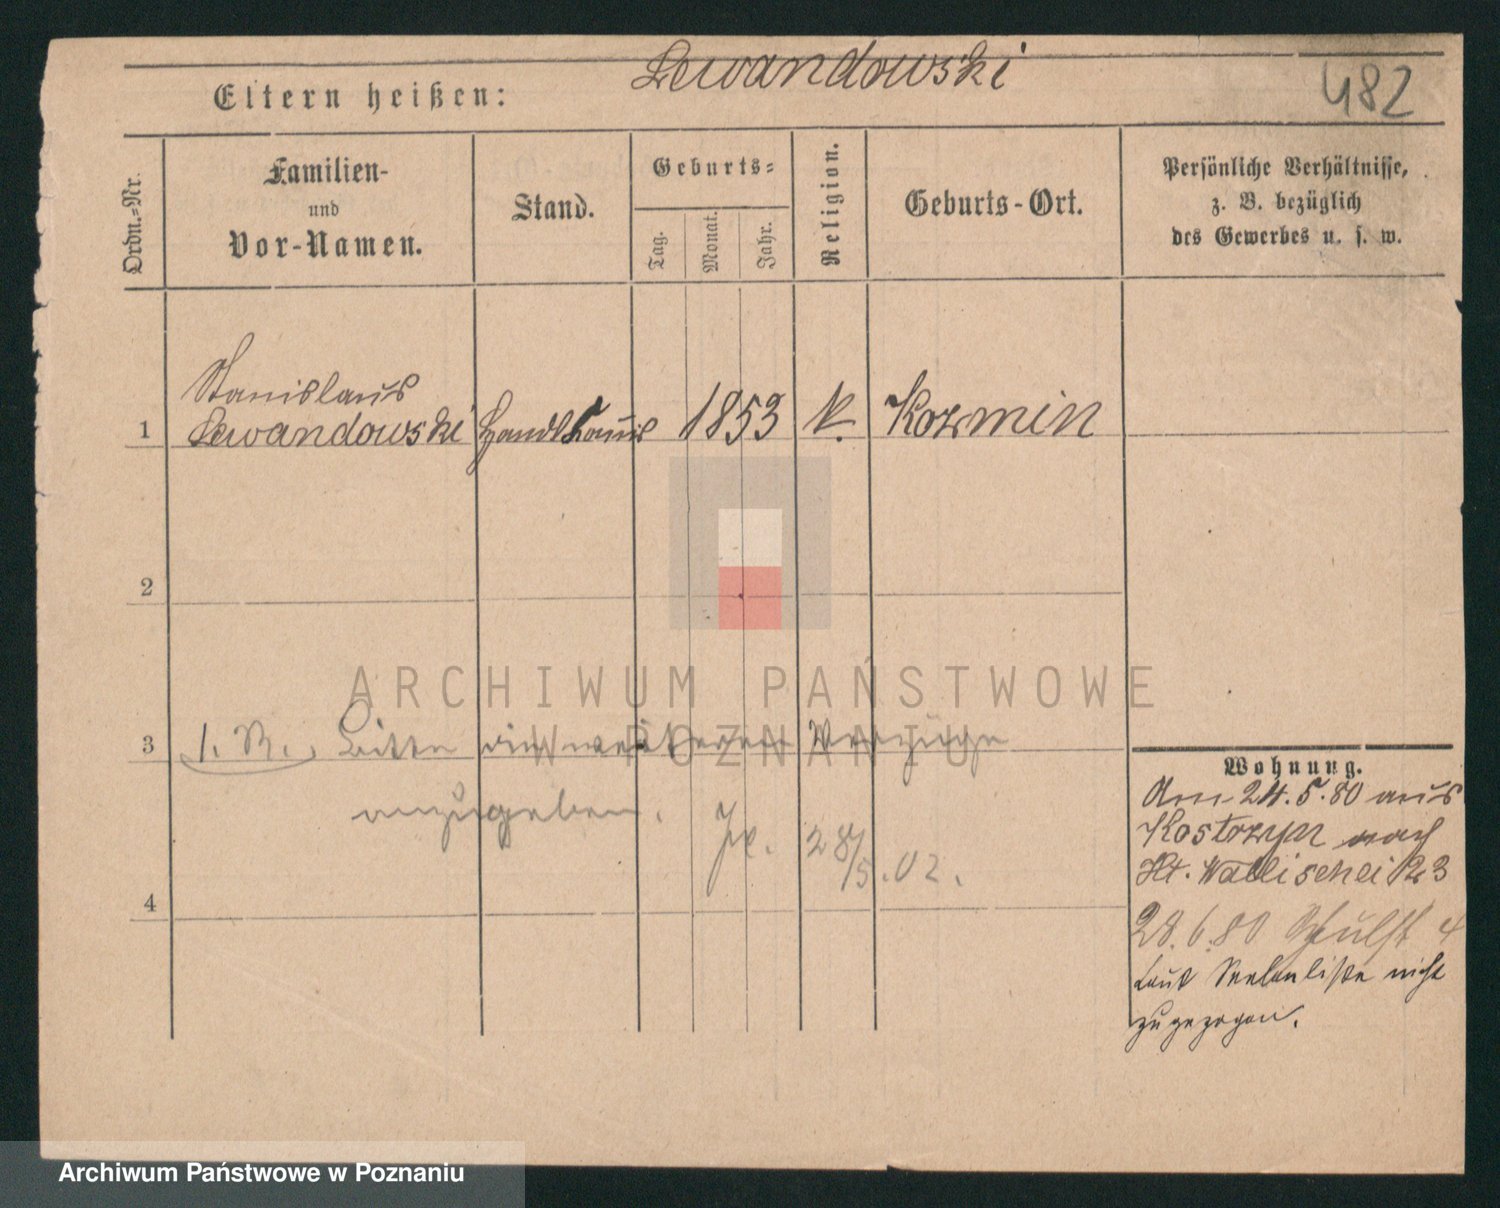 Lewandowski
482
Eltern heißen:
Ordn.=Nr.
Familien-
und
Vor-Namen.
Stand.
Geburts=
Tag.
Monat.
Jahr.
Religion.
Geburts-Ort.
Persönliche Verhältnisse,
z. B. bezüglich
des Gewerbes u. s. w.
Stanislaus
1 Lewandowski 1853 K. Kozmin
2
3 1. R. Bitte die weiteren Verzüge
anzugeben. 28/5.02.
4
Wohnung.
Am 24.5.80 aus
Kostrzyn nach
Wallischei 23
28.6.80 4
laut Seelenliste nicht
zugezogen.
ARCHIWUM PAŃSTWOWE
W POZNANIU
Archiwum Państwowe w Poznaniu